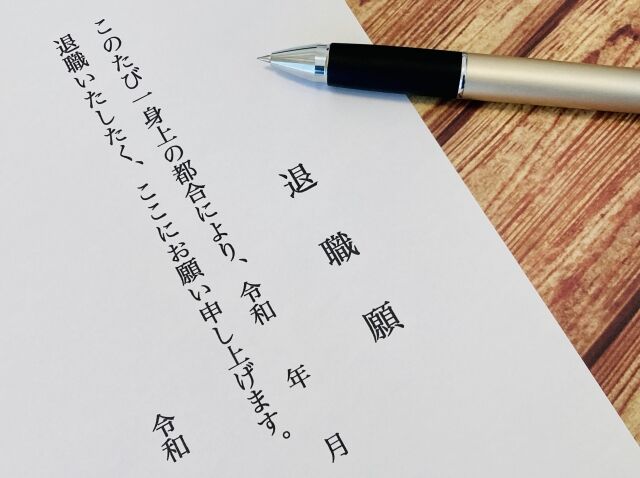 退職願
このたび一身上の都合により、令和　年　月
退職いたしたく、ここにお願い申し上げます。
令和